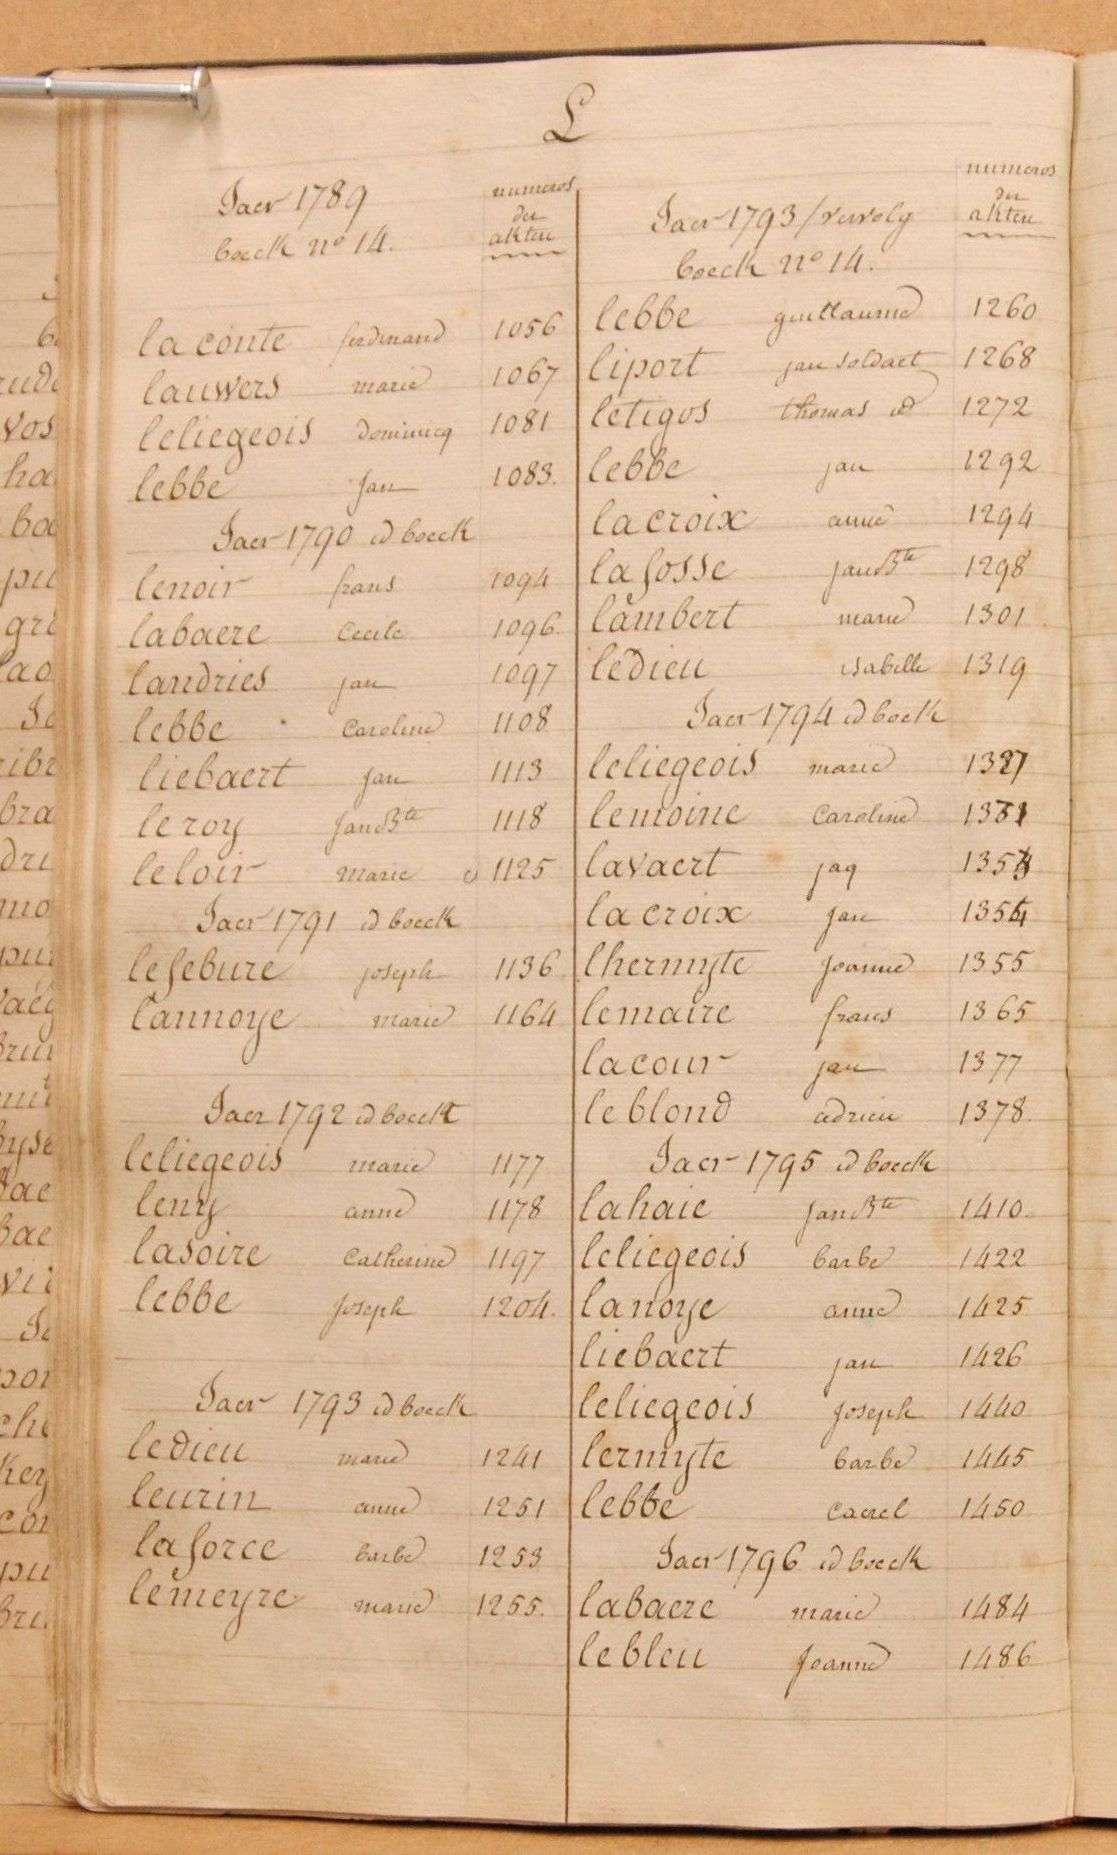 L
Jaer 1789
boeck nº 14.
numeros
der
akten
la conte ferdinand 1056
lauwers marie 1067
leliegeois dominicq 1081
lebbe Jan 1083.
Jaer 1790 id boeck
lenoir frans 1094
labaere Cecile 1096
landries jan 1097
lebbe Caroline 1108
liebaert Jan 1113
le roy Jan Bte 1118
leloir marie 1125
Jaer 1791 id boeck
lefebure joseph 1136
lannoye marie 1164
Jaer 1792 id boeck
leliegeois marie 1177
leny anne 1178
lasoire Catherine 1197
lebbe Joseph 1204.
Jaer 1793 id boeck
ledieu marie 1241
leurin anne 1251
laforce barbe 1253
lemeyre marie 1255.
Jaer 1793 / vervolg
boeck nº 14.
numeros
der
akten
lebbe guillaume 1260
liport jan soldaet 1268
letigos thomas id 1272
lebbe jan 1292
lacroix anne 1294
lafosse jan Bte 1298
lambert marie 1301
ledieu isabelle 1319
Jaer 1794 id boeck
leliegeois marie 1327
lemoine Caroline 1331
lavaert jaq 1353
lacroix Jan 1354
lhermyte Joanne 1355
lemaire frans 1365
lacour jan 1377
leblond adrien 1378.
Jaer 1795 id boeck
lahaie Jan Bte 1410
leliegeois barbe 1422
lanoye anne 1425
liebaert jan 1426
leliegeois Joseph 1440
lermyte barbe 1445
lebbe Caerel 1450
Jaer 1796 id boeck
labaere marie 1484
lebleu Joanne 1486